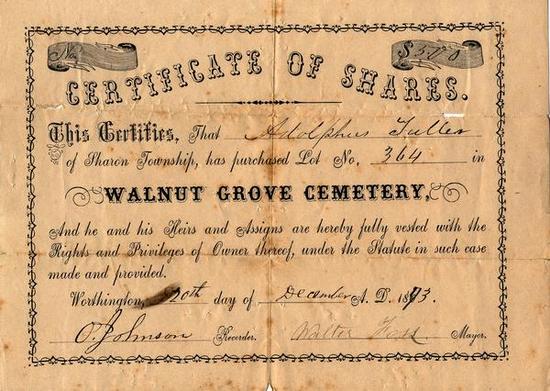 No.
$ 5.00
CERTIFICATE OF SHARES.
This Certifies, That Adolphus Fuller
of Sharon Township, has purchased Lot No, 364 in
WALNUT GROVE CEMETERY,
And he and his Heirs and Assigns are hereby fully vested with the
Rights and Privileges of Owner thereof, under the Statute in such case
made and provided.
Worthington, 20th day of December A. D. 1873.
O. Johnson Recorder. Walter Mayor.